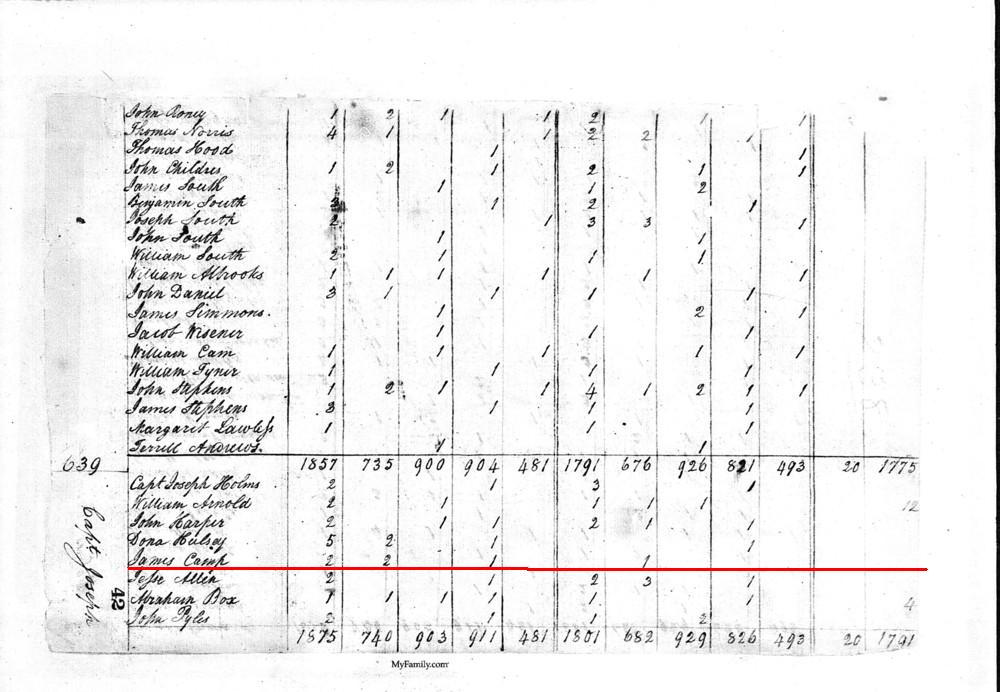 John Roney 1 2 1 1 2 1 1
Thomas Norris 4 1 1 2 2 1
Thomas Hood 1 1
John Childres 1 2 1 2 1 1
James South 1 1 2
Benjamin South 3 1 2 1
Joseph South 2 1 3 3 1
John South 1 1
William South 2 1 1 1
William Albrooks 1 1 1 1 1 1
John Daniel 3 1 1 1 1
James Simmons. 1 2 1
Jacob Wisener 1 1 1
William Cam 1 1 1 1 1
William Tyner 1 1 1 1
John Stephens 1 2 1 1 4 1 2 1 1
James Stephens 3 1 1 1
Margaret Lawless 1 1 1
Terrill Andrews. 1 1
639 1857 735 900 904 481 1791 676 926 821 493 20 1775
Capt Joseph Holms 2 1 3 1
William Arnold 2 1 1 1 1 12
John Harper 2 1 1 2 1 1
Dona Hulsey 5 2 1 1
James Camp 2 2 1 1
Jesse Allen 2 1 2 3 1
Abraham Box 1 1 1 1 1 1 4
John Pyles 2 1 1 2
1875 740 903 911 481 1801 682 929 826 493 20 1791
Capt Joseph
42
MyFamily.com